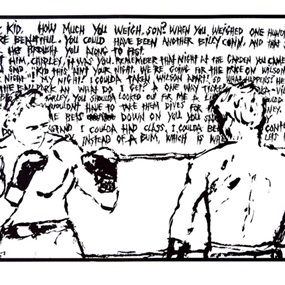 KID. HOW MUCH YOU WEIGH, SON? WHEN YOU WEIGHED ONE HUND
RE BEAUTIFUL. YOU COULD HAVE BEEN ANOTHER BILLY CONN, AND THAT
HE BROUGHT YOU ALONG TOO FAST.
HIM, CHARLEY, IT WAS YOU. REMEMBER THAT NIGHT AT THE GARDEN YOU CAME
AND KID THIS AIN'T YOUR NIGHT. WE'RE GOING FOR THE PRICE ON WILSON
NIGHT! MY NIGHT! I COULDA TAKEN WILSON APART! SO WHAT HAPPENS? HE
BALLPARK AN WHAT DO I GET? A ONE WAY TICKE
CHARLEY, YOU SHOULDA LOOKED OUT FOR ME A
WOULDN'T HAVE TO TAKE THEM DIVES FOR
BETS DOWN ON YOU YOU
STAND I COULDA HAD CLASS. I COULDA BE CONT
INSTEAD OF A BUM, WHICH IS